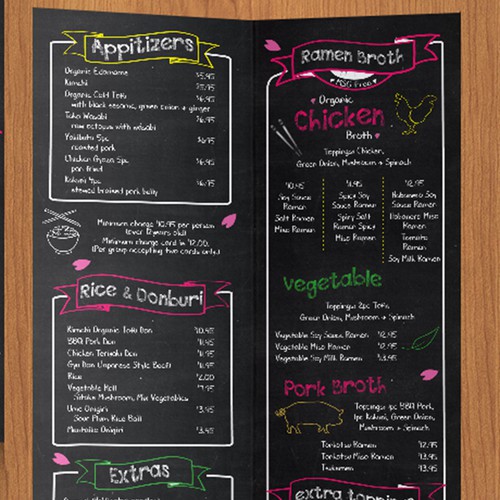 Appitizers
Organic Edamame $5.95
Kimchi $5.95
Organic Cold Tofu $6.95
with black sesame, green onion + ginger
Tako Wasabi $6.95
raw octopus with wasabi
Yakibuta 5pc $6.95
roasted pork
Chicken Gyoza 5pc $6.95
pan fried
Kakuni 4pc $6.95
stewed braised pork belly
Minimum charge $10.95 per person
(over 8 years old)
Minimum charge card is $12.00.
(Per group accepting two cards only)
Rice & Donburi
Kimchi Organic Tofu Don $10.95
BBQ Pork Don $11.95
Chicken Teriyaki Don $11.95
Gyu Don (Japanese Style Beef) $11.95
Rice $2.00
Vegetable Roll $7.95
Shitake Mushroom, Mix Vegetables
Ume Onigiri $3.95
Sour Plum Rice Ball
Mentaiko Onigiri $3.95
Extras
Ramen Broth
MSG Free
Organic
Chicken
Broth
Toppings: Chicken,
Green Onion, Mushroom + Spinach
10.95 11.95 12.95
Soy Sauce Ramen
Salt Ramen
Miso Ramen
Spicy Soy Sauce Ramen
Spicy Salt Ramen
Spicy Miso Ramen
Habanero Soy Sauce Ramen
Habanero Miso Ramen
Tomato Ramen
Soy Milk Ramen
Vegetable
Toppings: 2pc Tofu,
Green Onion, Mushroom + Spinach
Vegetable Soy Sauce Ramen $12.95
Vegetable Miso Ramen $12.95
Vegetable Soy Milk Ramen $13.95
Pork Broth
Toppings: 1pc BBQ Pork,
1pc Kakuni, Green Onion,
Mushroom + Spinach
Tonkotsu Ramen $12.95
Tonkotsu Miso Ramen $13.95
Tsukemen $13.95
extra toppings